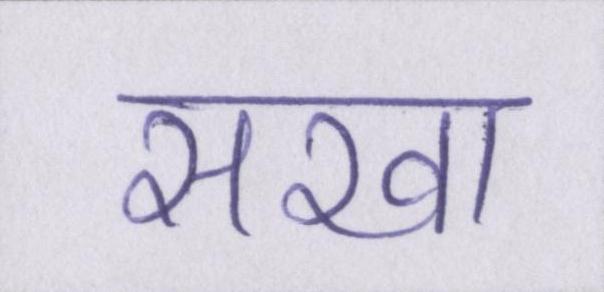 सखा